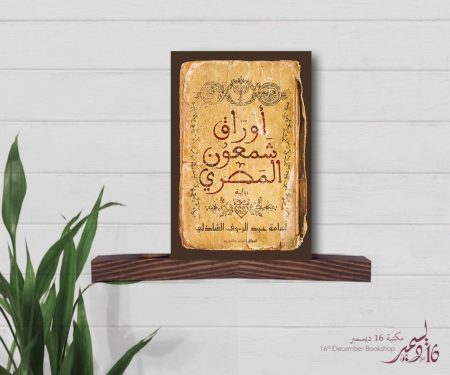 أوراق
شمعون
المصري
رواية
أسامة عبد الرءوف الشاذلي
مكتبة 16 ديسمبر
16th December Bookshop
16 ديسمبر